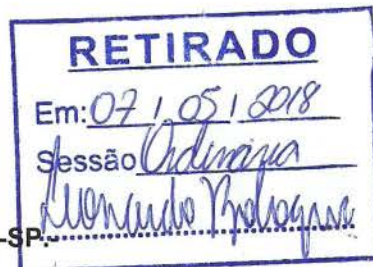 RETIRADO
Em: 07 / 05 / 2018
Sessão Ordinária
Leonardo
-SP.